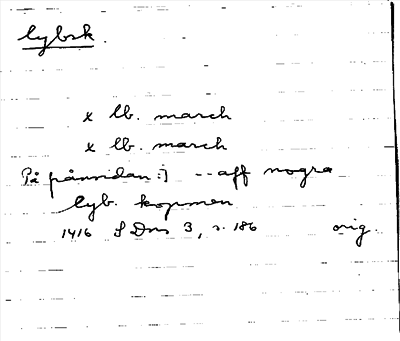 lybsk.
x lb. march
x lb. march
På pånsidan:] -- aff nogra
lyb. kopmen
1416 SDns 3, s. 186 orig.